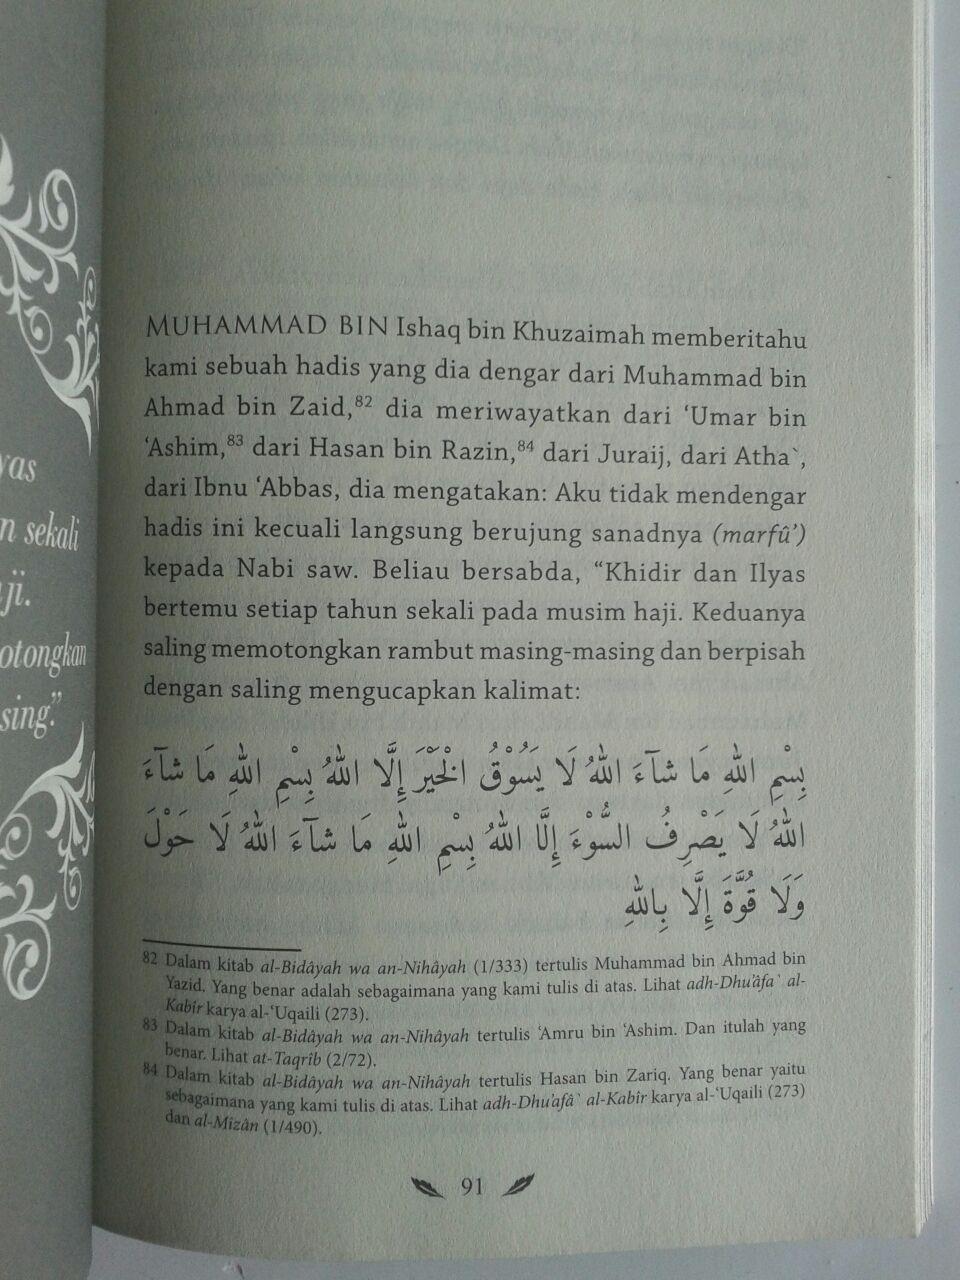 yas
n sekali
ji.
otongkan
sing."
MUHAMMAD BIN Ishaq bin Khuzaimah memberitahu
kami sebuah hadis yang dia dengar dari Muhammad bin
Ahmad bin Zaid,82 dia meriwayatkan dari ‘Umar bin
‘Ashim,83 dari Hasan bin Razin,84 dari Juraij, dari Atha`,
dari Ibnu ‘Abbas, dia mengatakan: Aku tidak mendengar
hadis ini kecuali langsung berujung sanadnya (marfû’)
kepada Nabi saw. Beliau bersabda, “Khidir dan Ilyas
bertemu setiap tahun sekali pada musim haji. Keduanya
saling memotongkan rambut masing-masing dan berpisah
dengan saling mengucapkan kalimat:
بِسْمِ اللهِ مَا شَآءَ اللهُ لَا يَسُوْقُ الْخَيْرَ إِلَّا اللهُ بِسْمِ اللهِ مَا شَآءَ
اللهُ لَا يَصْرِفُ السُّوْءَ إِلَّا اللهُ بِسْمِ اللهِ مَا شَآءَ اللهُ لَا حَوْلَ
وَلَا قُوَّةَ إِلَّا بِاللهِ
82 Dalam kitab al-Bidâyah wa an-Nihâyah (1/333) tertulis Muhammad bin Ahmad bin
Yazid. Yang benar adalah sebagaimana yang kami tulis di atas. Lihat adh-Dhu'âfa` al-
Kabîr karya al-‘Uqaili (273).
83 Dalam kitab al-Bidâyah wa an-Nihâyah tertulis ‘Amru bin ‘Ashim. Dan itulah yang
benar. Lihat at-Taqrîb (2/72).
84 Dalam kitab al-Bidâyah wa an-Nihâyah tertulis Hasan bin Zariq. Yang benar yaitu
sebagaimana yang kami tulis di atas. Lihat adh-Dhu'afâ` al-Kabîr karya al-‘Uqaili (273)
dan al-Mizân (1/490).
91